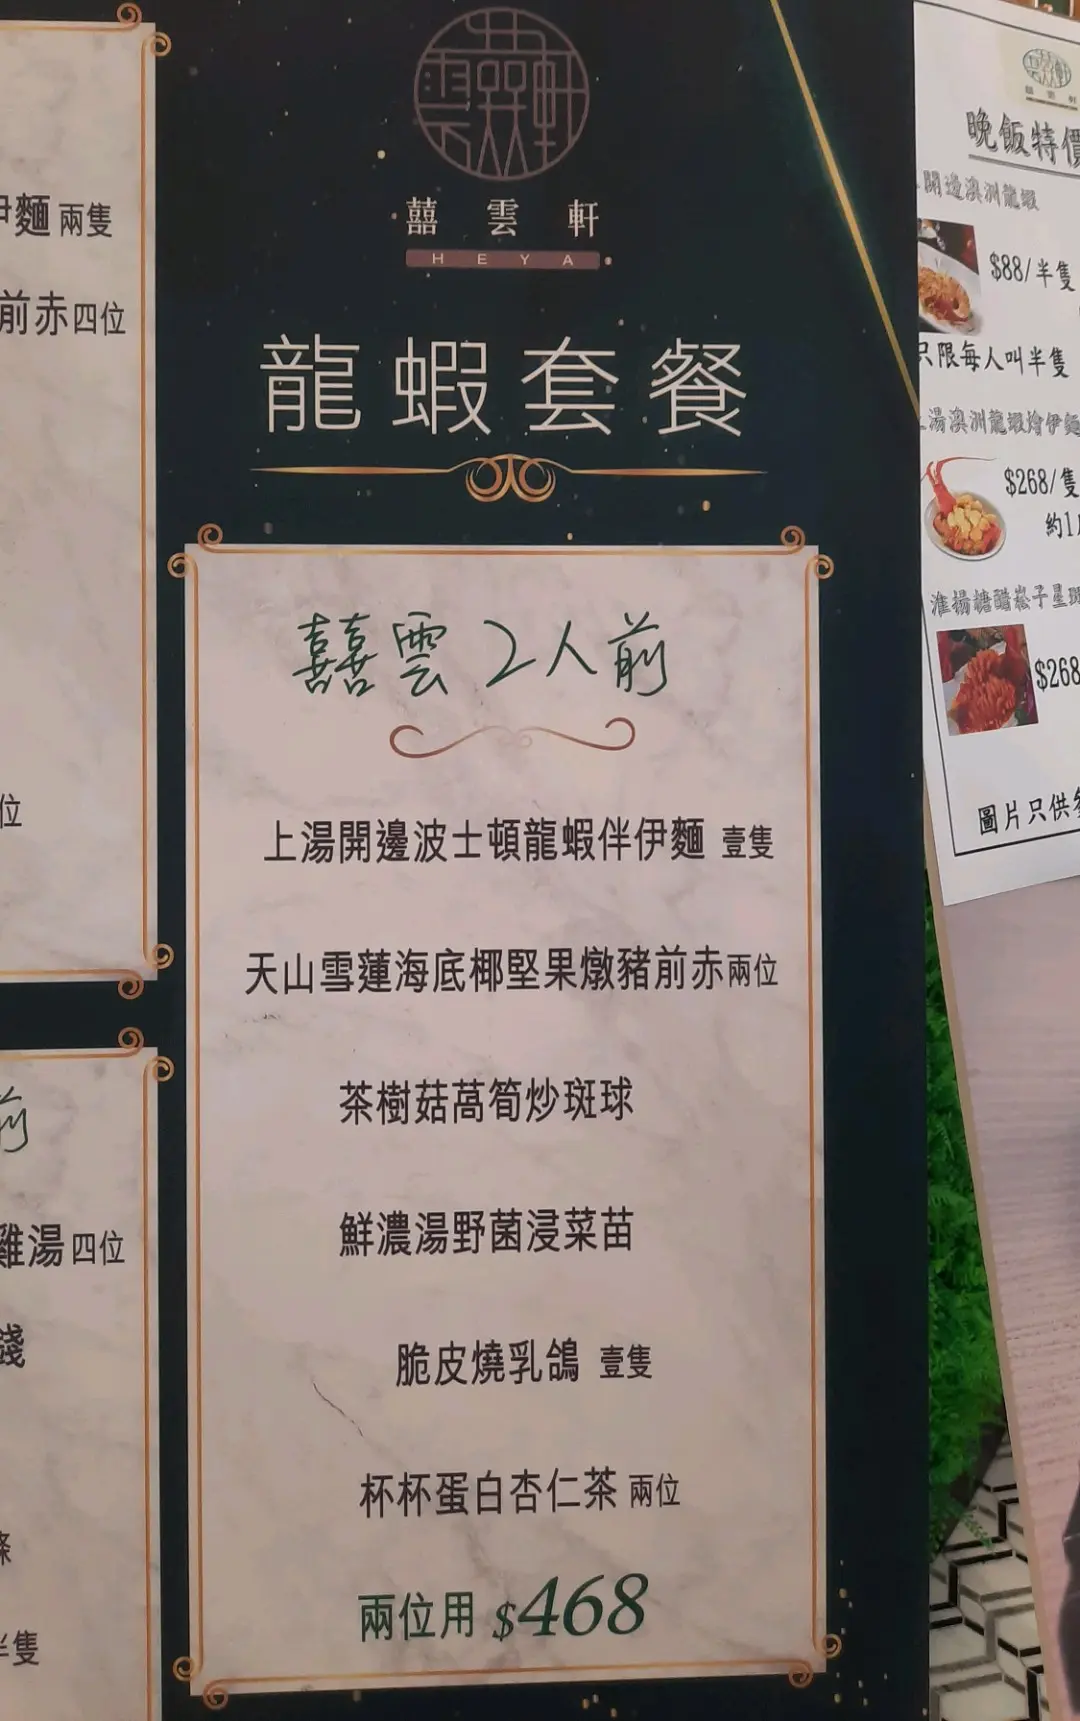 伊麵 兩隻
前赤 四位
位
前
雞湯 四位
錢
條
半隻
囍雲軒
HEYA
龍蝦套餐
囍雲2人前
上湯開邊波士頓龍蝦伴伊麵 壹隻
天山雪蓮海底椰堅果燉豬前赤 兩位
茶樹菇萵筍炒斑球
鮮濃湯野菌浸菜苗
脆皮燒乳鴿 壹隻
杯杯蛋白杏仁茶 兩位
兩位用 $468
囍雲軒
晚飯特價
開邊澳洲龍蝦
$88/半隻
只限每人叫半隻
上湯澳洲龍蝦燴伊麵
$268/隻
約1
淮揚糖醋崧子星斑
$268
圖片只供參